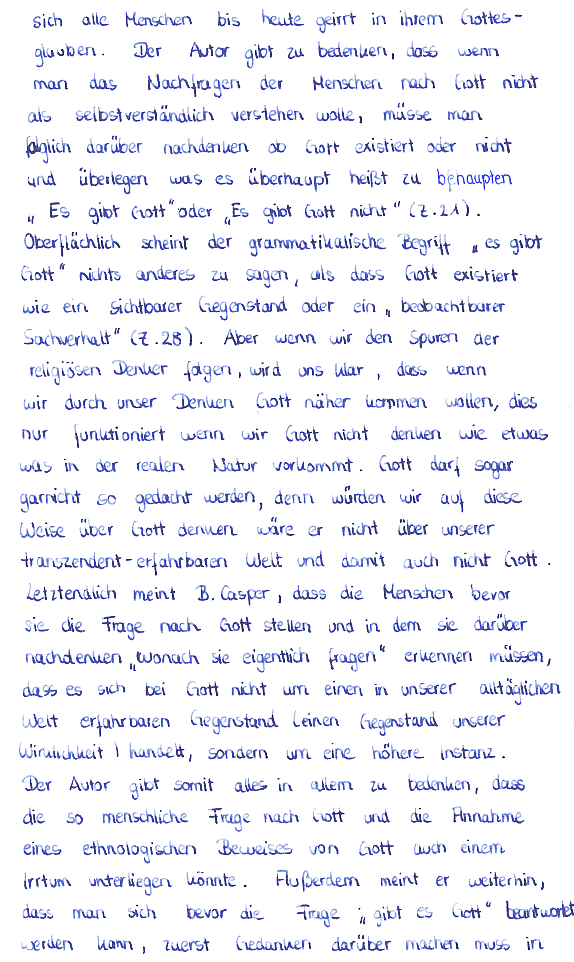 sich alle Menschen bis heute geirrt in ihrem Gottes-
glauben. Der Autor gibt zu bedenken, dass wenn
man das Nachfragen der Menschen nach Gott nicht
als selbstverständlich verstehen wolle, müsse man
folglich darüber nachdenken ob Gott existiert oder nicht
und überlegen was es überhaupt heißt zu behaupten
„Es gibt Gott" oder „Es gibt Gott nicht" (Z.21).
Oberflächlich scheint der grammatikalische Begriff „es gibt
Gott" nichts anderes zu sagen, als dass Gott existiert
wie ein sichtbarer Gegenstand oder ein „beobachtbarer
Sachverhalt" (Z.28). Aber wenn wir den Spuren der
religiösen Denker folgen, wird uns klar, dass wenn
wir durch unser Denken Gott näher kommen wollen, dies
nur funktioniert wenn wir Gott nicht denken wie etwas
was in der realen Natur vorkommt. Gott darf sogar
garnicht so gedacht werden, denn würden wir auf diese
Weise über Gott denken wäre er nicht über unserer
transzendent-erfahrbaren Welt und damit auch nicht Gott.
Letztendlich meint B. Casper, dass die Menschen bevor
sie die Frage nach Gott stellen und in dem sie darüber
nachdenken „wonach sie eigentlich fragen" erkennen müssen,
dass es sich bei Gott nicht um einen in unserer alltäglichen
Welt erfahrbaren Gegenstand (einen Gegenstand unserer
Wirklichkeit) handelt, sondern um eine höhere Instanz.
Der Autor gibt somit alles in allem zu bedenken, dass
die so menschliche Frage nach Gott und die Annahme
eines ethnologischen Beweises von Gott auch einem
Irrtum unterliegen könnte. Außerdem meint er weiterhin,
dass man sich bevor die Frage „gibt es Gott" beantwortet
werden kann, zuerst Gedanken darüber machen muss in